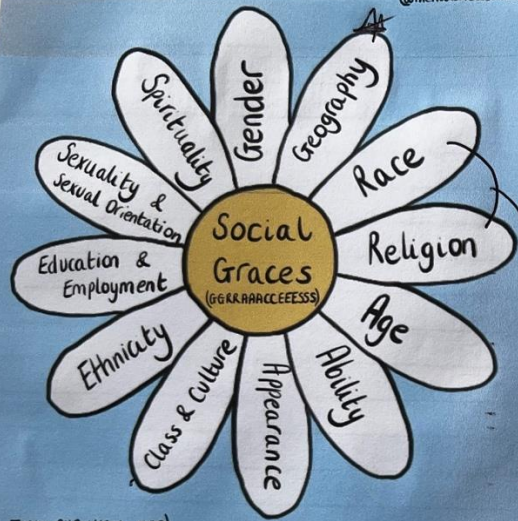 Social
Graces
(GGRRAAACCEEESSS)
Gender
Geography
Race
Religion
Age
Ability
Appearance
Class & Culture
Ethnicity
Education &
Employment
Sexuality &
Sexual Orientation
Spirituality